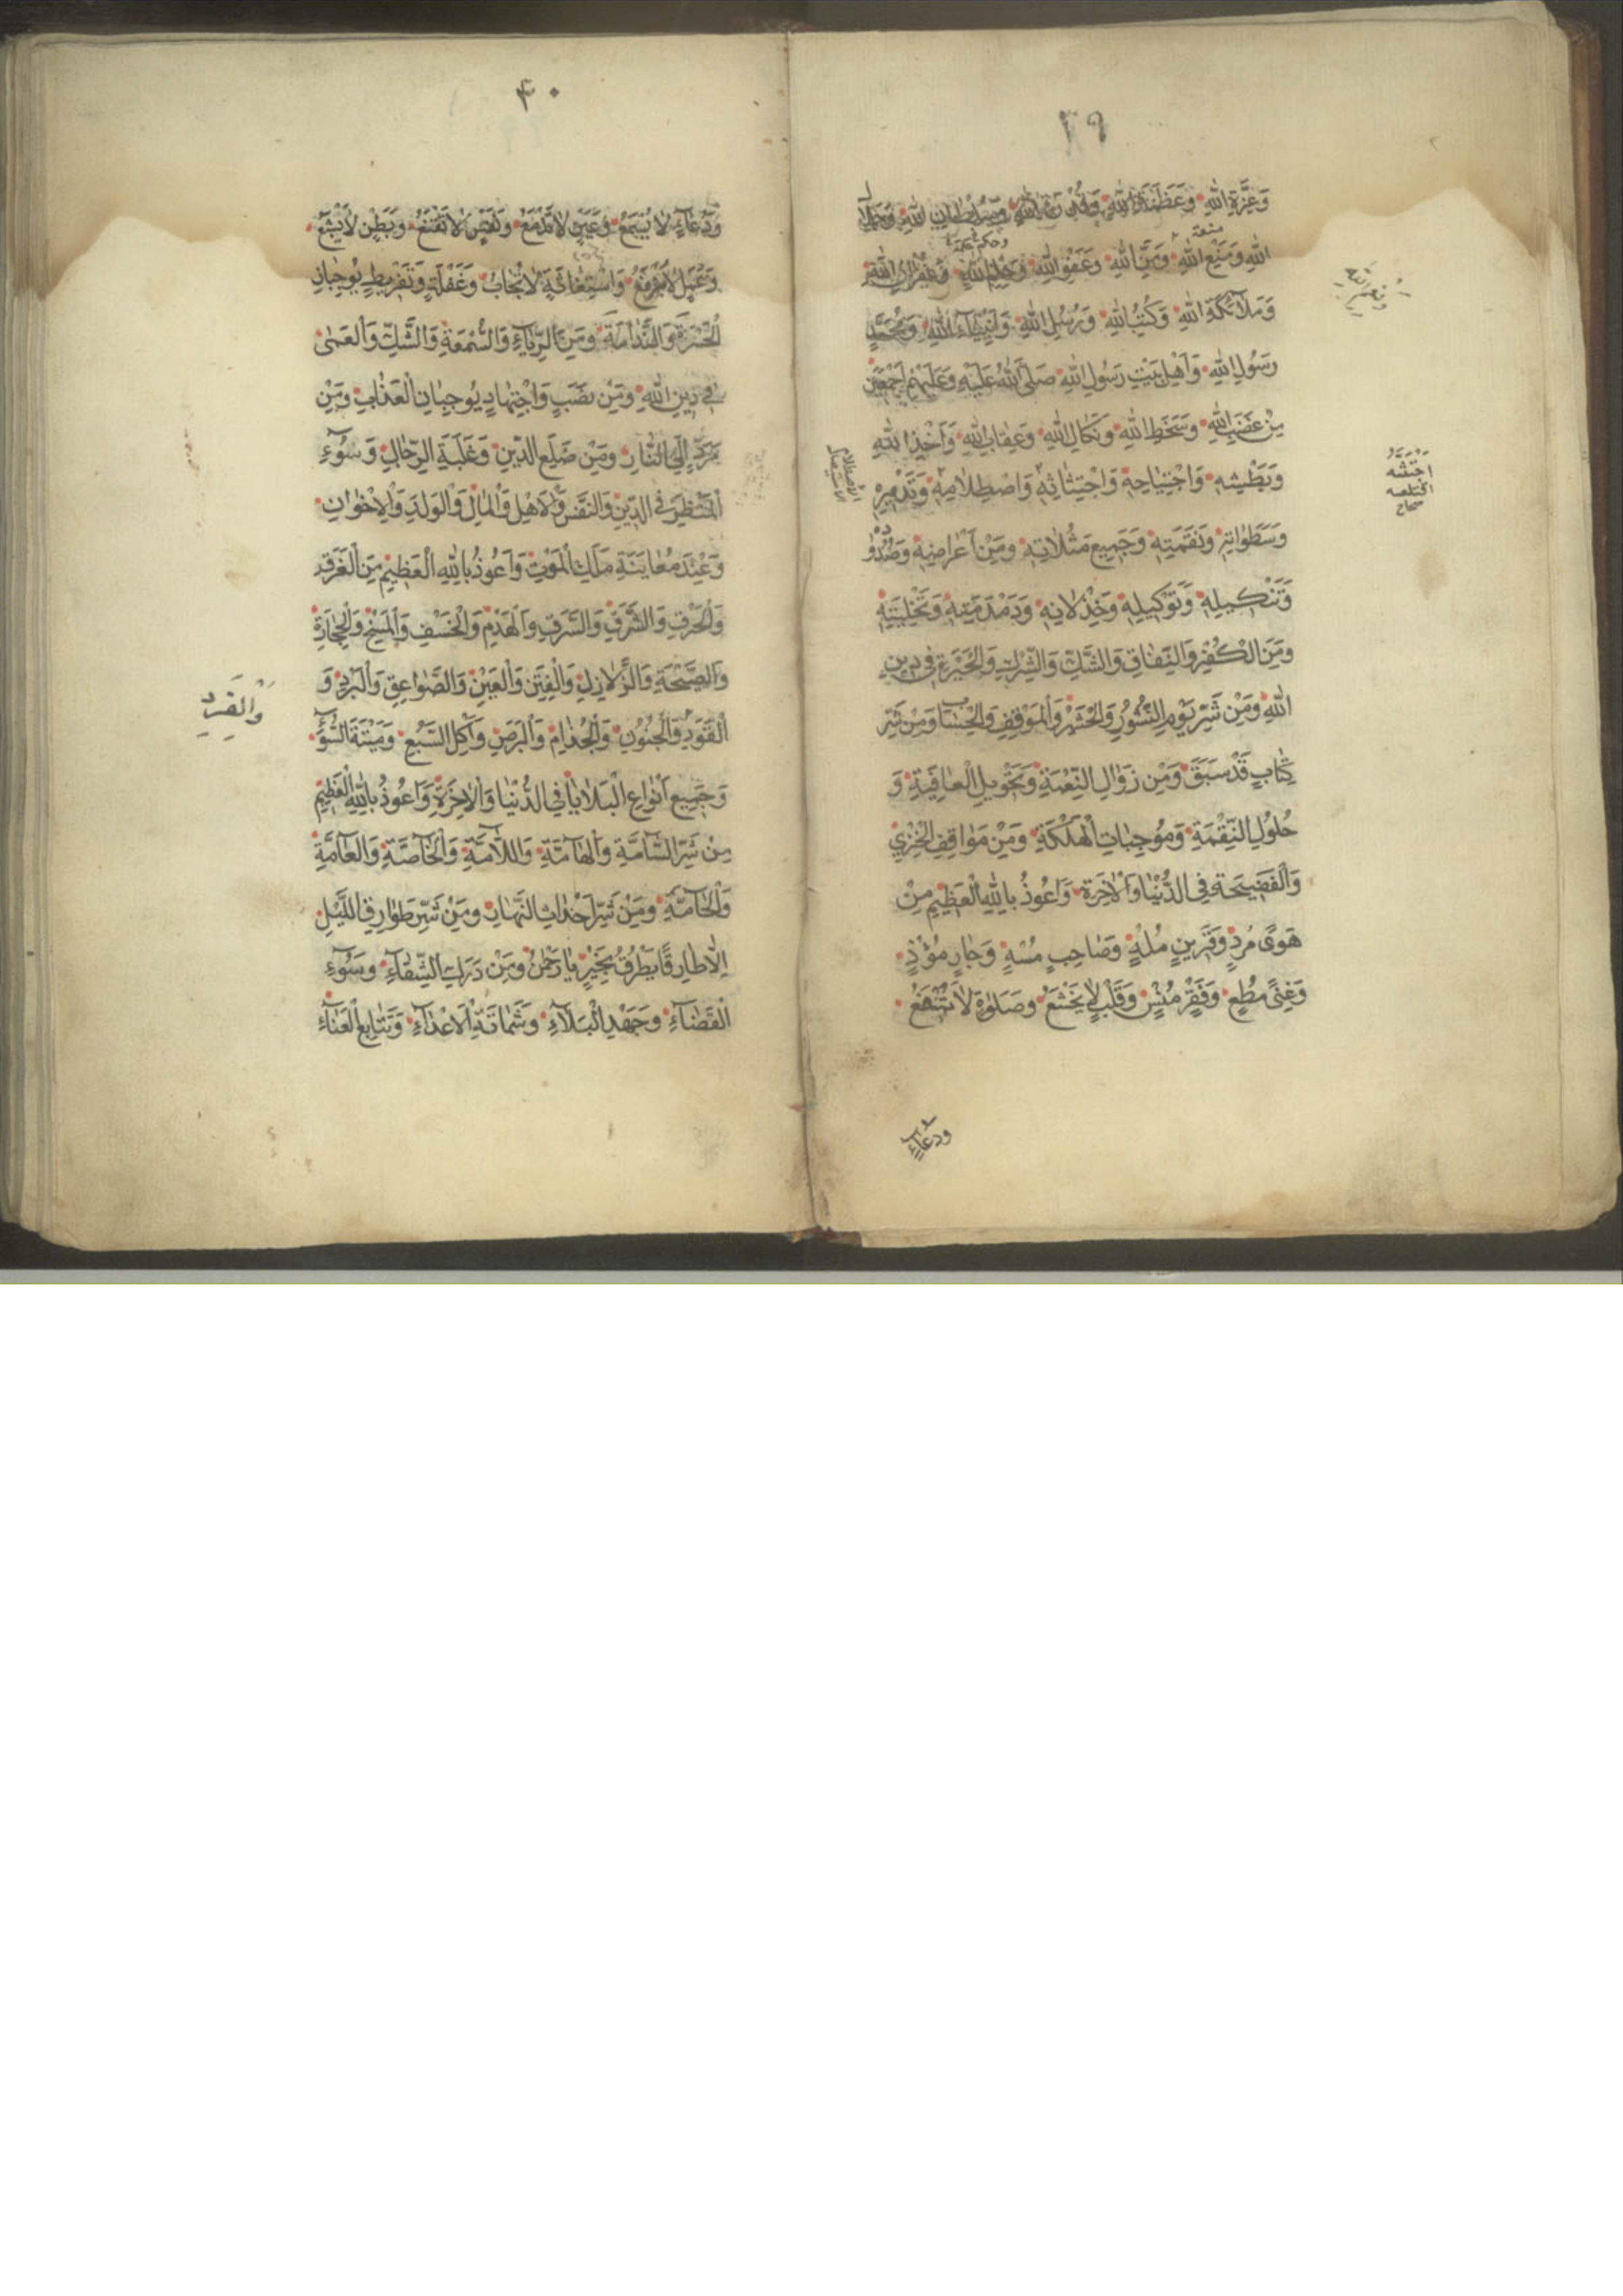 ٣٩
وَعِزَّةِ اللهِ وَعَظَمَةِ اللهِ وَسُلْطَانِ اللهِ
اللهِ وَمَنْعِ اللهِ وَمَنِّ اللهِ وَعَفْوِ اللهِ وَحِلْمِ اللهِ وَغُفْرَانِ اللهِ
وَمَلَآئِكَةِ اللهِ وَكُتُبِ اللهِ وَرُسُلِ اللهِ وَاَنْبِيَآءِ اللهِ وَمُحَمَّدٍ
رَسُولِ اللهِ وَاَهْلِ بَيْتِ رَسُولِ اللهِ صَلَّى اللهُ عَلَيْهِ وَعَلَيْهِمْ اَجْمَعِينَ
مِنْ غَضَبِ اللهِ وَسَخَطِ اللهِ وَنَكَالِ اللهِ وَعِقَابِ اللهِ وَاَخْذِ اللهِ
وَبَطْشِهِ وَاجْتِيَاحِهِ وَاجْتِثَاثِهِ وَاصْطِلَامِهِ وَتَدْمِيرِهِ
وَسَطَوَاتِهِ وَنَقِمَتِهِ وَجَمِيعِ مَثُلَاتِهِ وَمِنْ اِعْرَاضِهِ وَصُدُودِهِ
وَتَنْكِيلِهِ وَتَوْكِيلِهِ وَخِذْلَانِهِ وَدَمْدَمَتِهِ وَتَخْلِيَتِهِ
وَمِنَ الْكُفْرِ وَالنِّفَاقِ وَالشَّكِّ وَالشِّرْكِ وَالْحَيْرَةِ فِي دِينِ
اللهِ وَمِنْ شَرِّ يَوْمِ النُّشُورِ وَالْحَشْرِ وَالْمَوْقِفِ وَالْحِسَابِ وَمِنْ شَرِّ
كِتَابٍ قَدْ سَبَقَ وَمِنْ زَوَالِ النِّعْمَةِ وَتَحْوِيلِ الْعَافِيَةِ وَ
حُلُولِ النِّقْمَةِ وَمُوجِبَاتِ الْهَلَكَةِ وَمِنْ مَوَاقِفِ الْخِزْيِ
وَالْفَضِيحَةِ فِي الدُّنْيَا وَالْاٰخِرَةِ وَاَعُوذُ بِاللهِ الْعَظِيمِ مِنْ
هَوًى مُرْدٍ وَقَرِينٍ مُلْهٍ وَصَاحِبٍ مُسْهٍ وَجَارٍ مُؤْذٍ
وَغِنًى مُطْغٍ وَفَقْرٍ مُنْسٍ وَقَلْبٍ لَا يَخْشَعُ وَصَلٰوةٍ لَا تُرْفَعُ
وَدُعَآءٍ
اجتثه
اقتلعه
صحاح
الاصطلام
الاستيصال
٤٠
وَدُعَآءٍ لَا يُسْمَعُ وَعَيْنٍ لَا تَدْمَعُ وَنَفْسٍ لَا تَقْنَعُ وَبَطْنٍ لَا يَشْبَعُ
وَعَمَلٍ لَا يُرْفَعُ وَاسْتِغَاثَةٍ لَا تُجَابُ وَغَفْلَةٍ وَتَفْرِيطٍ يُوجِبَانِ
الْحَسْرَةَ وَالنَّدَامَةَ وَمِنَ الرِّيَآءِ وَالسُّمْعَةِ وَالشَّكِّ وَالْعَمٰى
فِي دِينِ اللهِ وَمِنْ نَصَبٍ وَاجْتِهَادٍ يُوجِبَانِ الْعَذَابَ وَمِنْ
مَرَدٍّ اِلَى النَّارِ وَمِنْ ضَلَعِ الدَّيْنِ وَغَلَبَةِ الرِّجَالِ وَسُوٓءِ
الْمَنْظَرِ فِي الدِّينِ وَالنَّفْسِ وَالْاَهْلِ وَالْمَالِ وَالْوَلَدِ وَالْاِخْوَانِ
وَعِنْدَ مُعَايَنَةِ مَلَكِ الْمَوْتِ وَاَعُوذُ بِاللهِ الْعَظِيمِ مِنَ الْغَرَقِ
وَالْحَرَقِ وَالشَّرَقِ وَالسَّرَقِ وَالْهَدْمِ وَالْخَسْفِ وَالْمَسْخِ وَالْحِجَارَةِ
وَالصَّيْحَةِ وَالزَّلَازِلِ وَالْفِتَنِ وَالْعَيْنِ وَالصَّوَاعِقِ وَالْبَرَدِ وَ
الْقَوَدِ وَالْجُنُونِ وَالْجُذَامِ وَالْبَرَصِ وَاَكْلِ السَّبُعِ وَمِيتَةِ السُّوٓءِ
وَجَمِيعِ اَنْوَاعِ الْبَلَايَا فِي الدُّنْيَا وَالْاٰخِرَةِ وَاَعُوذُ بِاللهِ الْعَظِيمِ
مِنْ شَرِّ السَّآمَّةِ وَالْهَآمَّةِ وَاللَّآمَّةِ وَالْخَآصَّةِ وَالْعَآمَّةِ
وَالْحَآمَّةِ وَمِنْ شَرِّ اَحْدَاثِ النَّهَارِ وَمِنْ شَرِّ طَوَارِقِ اللَّيْلِ
اِلَّا طَارِقًا يَطْرُقُ بِخَيْرٍ يَا رَحْمٰنُ وَمِنْ دَرَكِ الشَّقَآءِ وَسُوٓءِ
الْقَضَآءِ وَجَهْدِ الْبَلَآءِ وَشَمَاتَةِ الْاَعْدَآءِ وَتَتَابُعِ الْعَنَآءِ